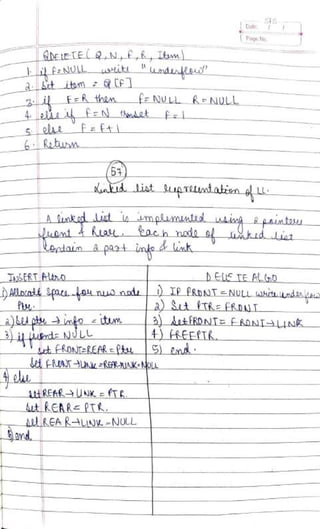 Date: / /
Page No.
QDELETE( Q, N, F, R, Item)
1. if F=NULL write "underflow"
2. Set item = Q[F]
3. if F=R then F=NULL R=NULL
4. else if F=N then set F=1
5. else F=F+1
6. Return
57
Linked list representation of LL.
A linked list is implemented using 2 pointers
front & Rear. Each node of linked list
Contain 2 part info & link
INSERT ALGO
1) Allocate space for new node
Ptr.
2) Set ptr → info = item
3) if front = NULL
Set FRONT=REAR=Ptr
Set FRONT→LINK=REAR→LINK=NULL
4) else
set REAR→LINK = PTR.
Set REAR = PTR.
set REAR→LINK=NULL
5) end
DELETE ALGO
1) IF FRONT = NULL write underflow
2) Set PTR = FRONT
3) Set FRONT = FRONT→LINK
4) FREEPTR.
5) end.